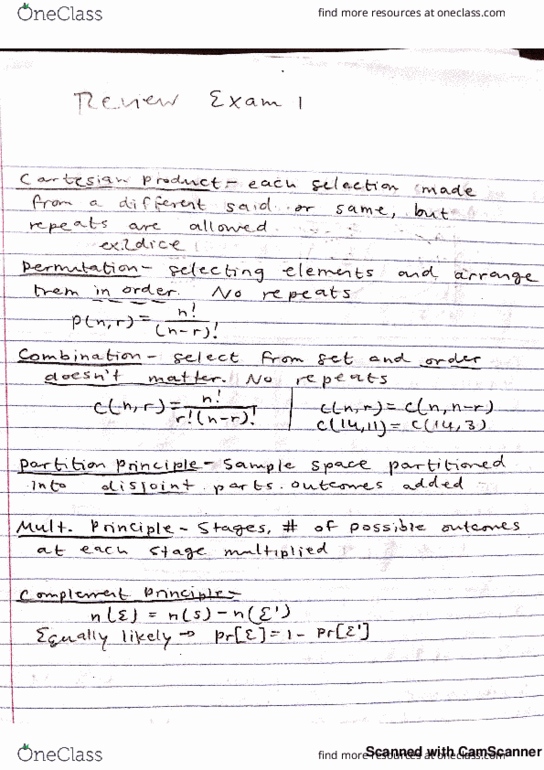 OneClass
find more resources at oneclass.com
Review Exam 1
Cartesian Product - each selection made
from a different said or same, but
repeats are allowed
ex2dice
Permutation - selecting elements and arrange
them in order. No repeats
P(n,r) = n!/(n-r)!
Combination - select from set and order
doesn't matter. No repeats
C(n,r) = n!/r!(n-r)! | C(n,r) = C(n,n-r)
C(14,11) = C(14,3)
Partition Principle - Sample space partitioned
into disjoint parts. outcomes added
Mult. Principle - Stages, # of possible outcomes
at each stage multiplied
Complement Principle -
n(E) = n(S) - n(E')
Equally likely → Pr[E] = 1 - Pr[E']
OneClass
find more resources at oneclass.com
Scanned with CamScanner